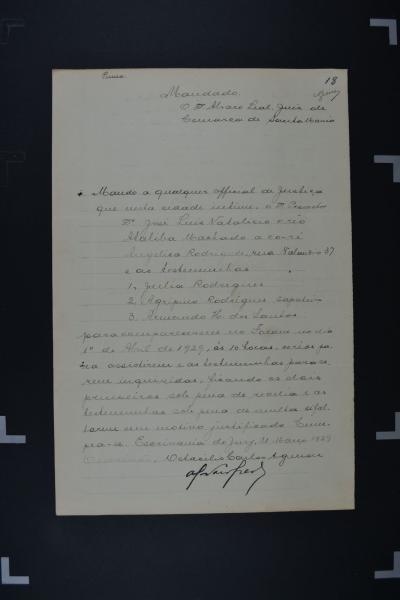 18
Mandado.
O Dr. Alvaro Leal, Juiz de
Comarca de Santa Maria
Mando a qualquer official de Justiça
que nesta cidade intime, o Dr. Promotor
Dr. José Luis Natalicio e réo
Ataliba Machado a co-ré
Angelica Rodrig de, rua 37
e as testemunhas
1, Julia Rodrigues
2, Agripino Rodrigues sapateiro
3. Armando H. dos Santos
para comparecerem no Forum no dia
1º de Abril de 1929, ás 10 horas,
ra assistirem e as testemunhas para se
rem inqueridas, ficando os dois
primeiros sob pena de revelia e as
testemunhas sob pena de multa si fal
tarem sem motivo justificado. Cum
pra-se. Escrivania do Jury, Março 1929
Octacilio Carlos